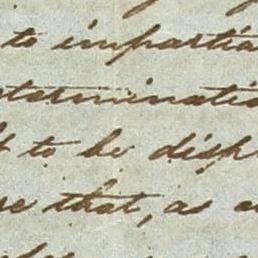 to impartia
terminatio
t to be disp
se that, as a